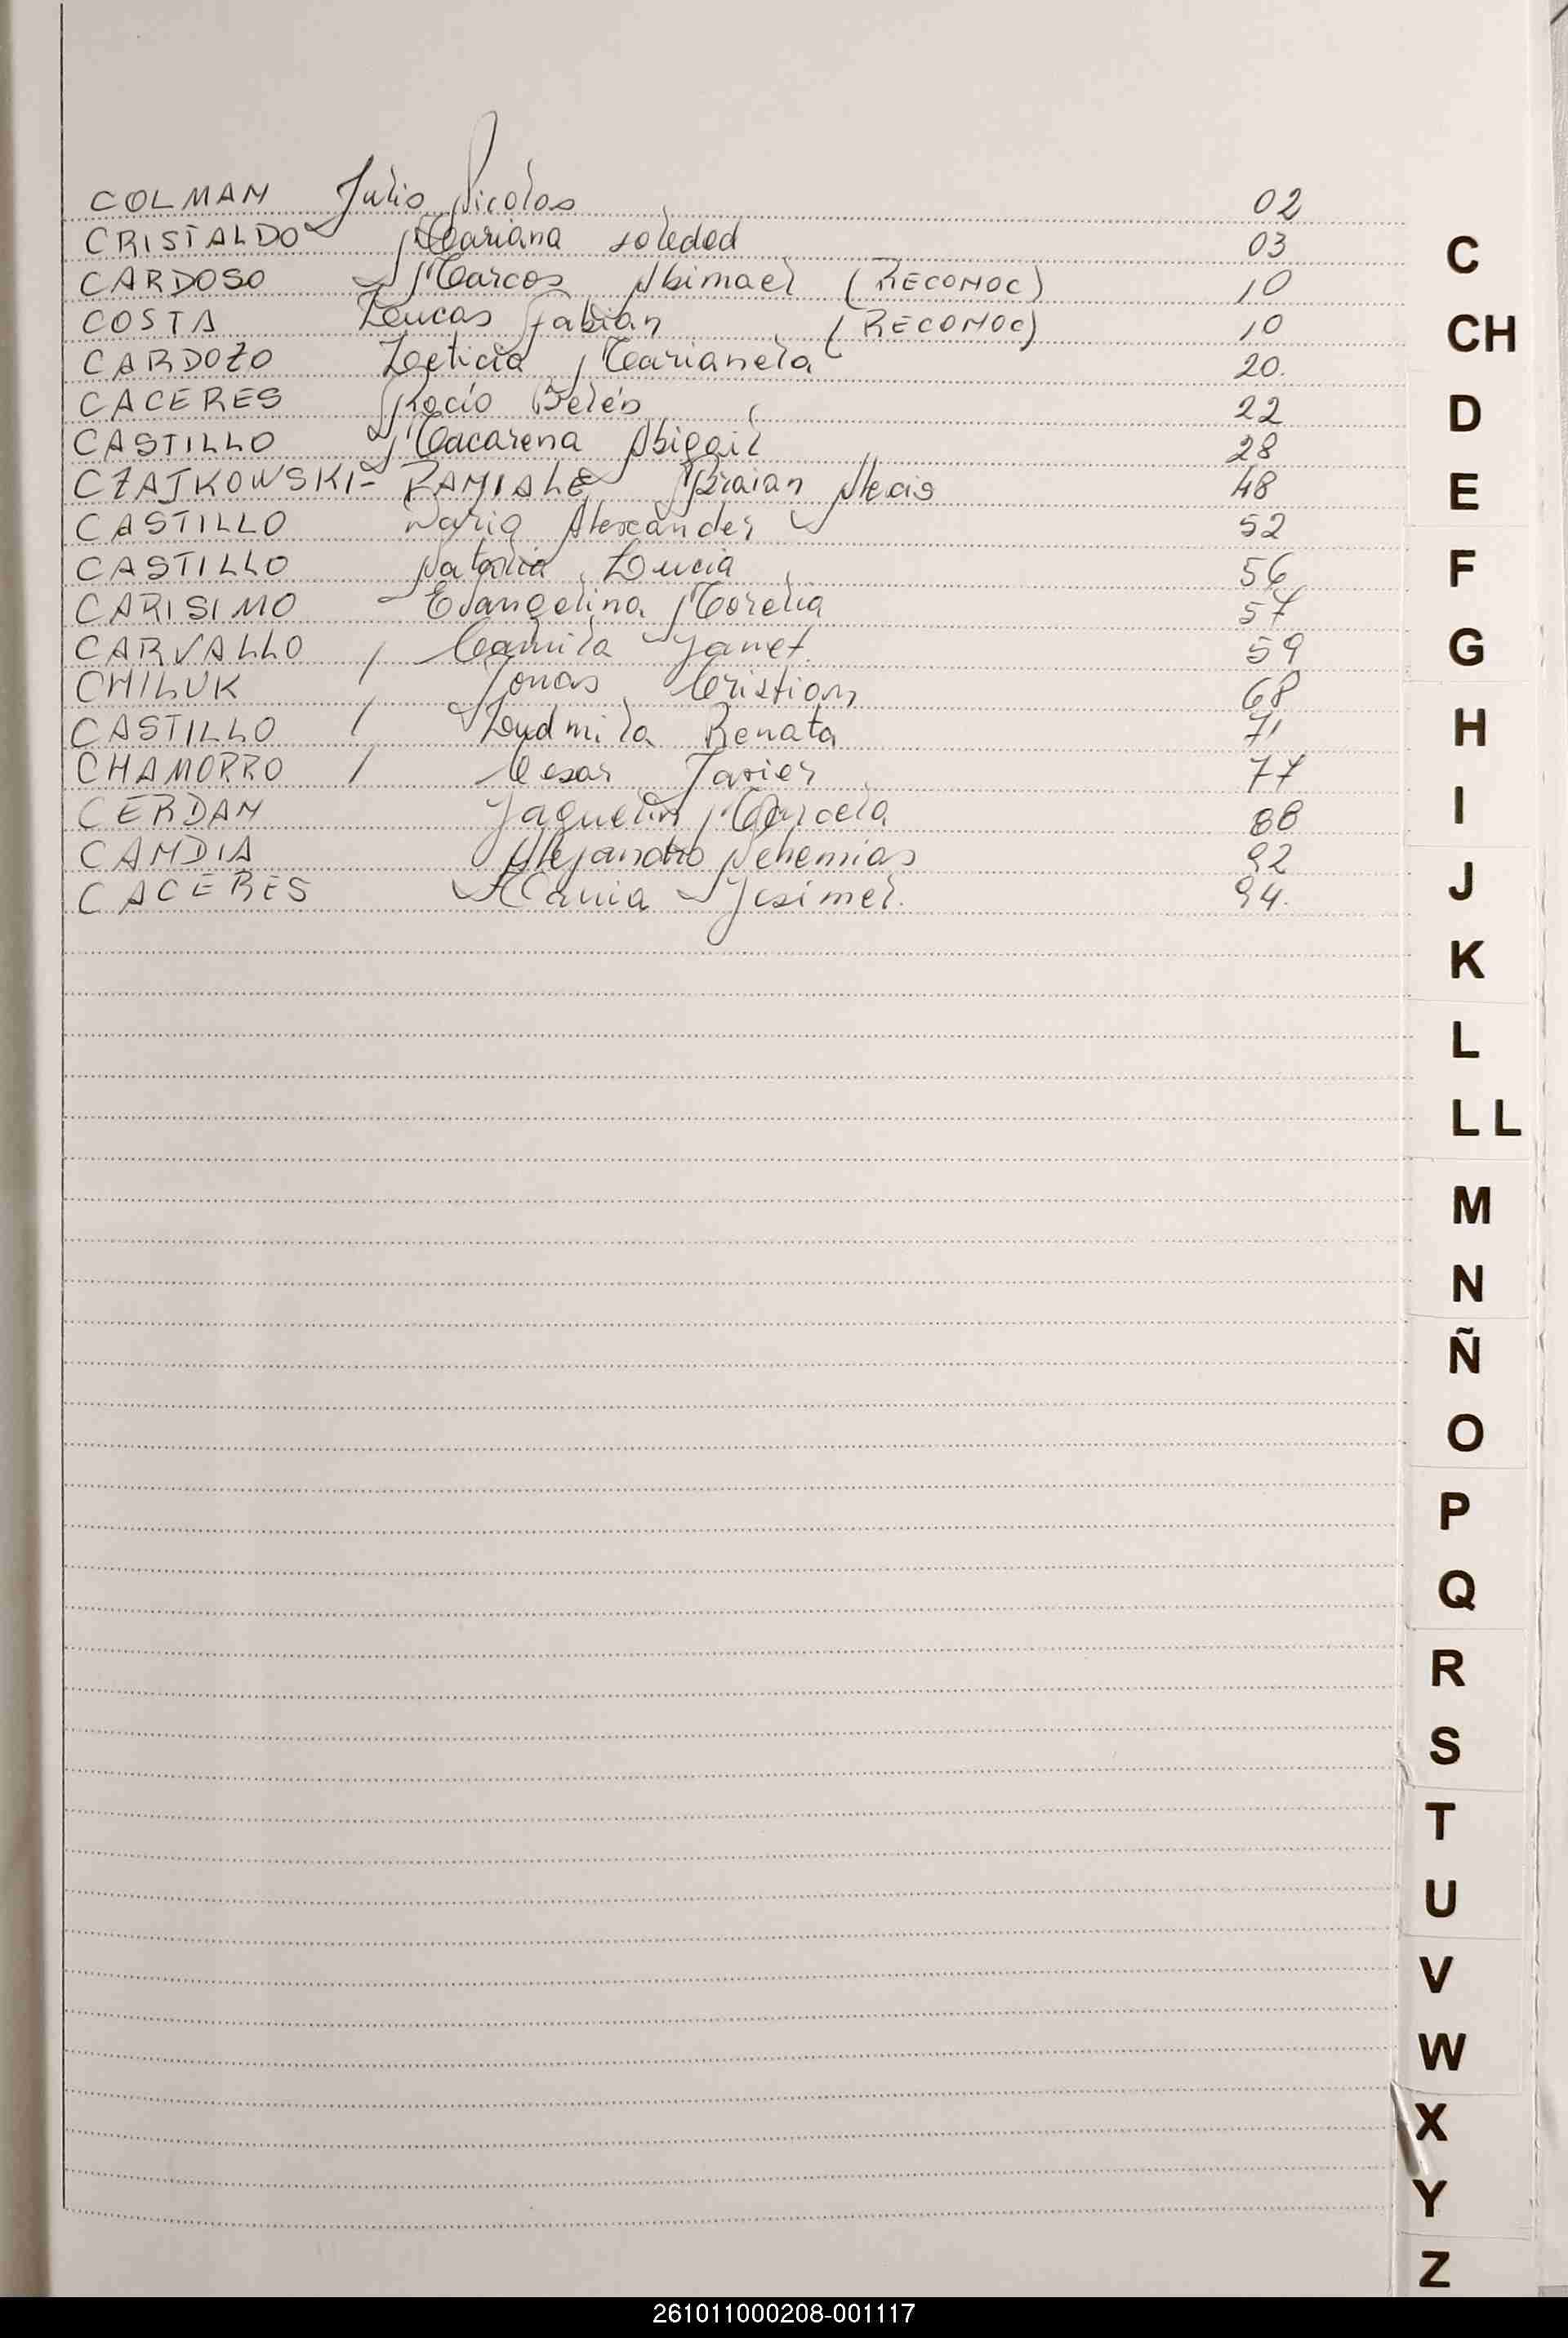 COLMAN Julio Nicolas 02
CRISTALDO Mariana Soledad 03
CARDOSO Marcos Abimael (RECONOC) 10
COSTA Lucas Fabian (RECONOC) 10
CARDOZO Leticia Marianela 20.
CACERES Rocío Belén 22
CASTILLO Macarena Abigail 28
CZAJKOWSKI- Braian Alexis 48
CASTILLO Dario Alexander 52
CASTILLO Natalia Lucia 56
CARISIMO Evangelina Morelia 57
CARVALLO Camila Yanet. 59
CHILUK Jonas Cristian 68
CASTILLO Ludmila Renata 71
CHAMORRO Cesar Javier 77
CERDAN Jaquelin Marcela 88
CANDIA Alejandro Nehemias 92
CACERES Yesimel. 94.
C
CH
D
E
F
G
H
I
J
K
L
LL
M
N
Ñ
O
P
Q
R
S
T
U
V
W
X
Y
Z
261011000208-001117